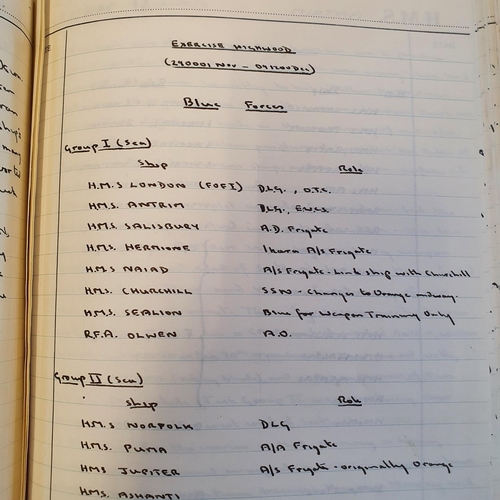 EXERCISE HIGHWOOD
(290001 NOV - 091200 DEC)
Blue Forces
Group I (Sea)
Ship Role
H.M.S LONDON (FOF1) DLG., O.T.C.
H.M.S. ANTRIM DLG,
H.M.S. SALISBURY A.D. Frigate
H.M.S. HERMIONE Ikara A/S Frigate
H.M.S NAIAD A/S Frigate - Link ship with Churchill
H.M.S. CHURCHILL SSN - Change to Orange midway.
H.M.S. SEALION Blue for Weapon Training Only
R.F.A. OLWEN A.O.
Group II (Sea)
Ship Role
H.M.S NORFOLK DLG
H.M.S. PUMA A/A Frigate
HMS JUPITER A/S Frigate - originally Orange
H.M.S. ASHANTI